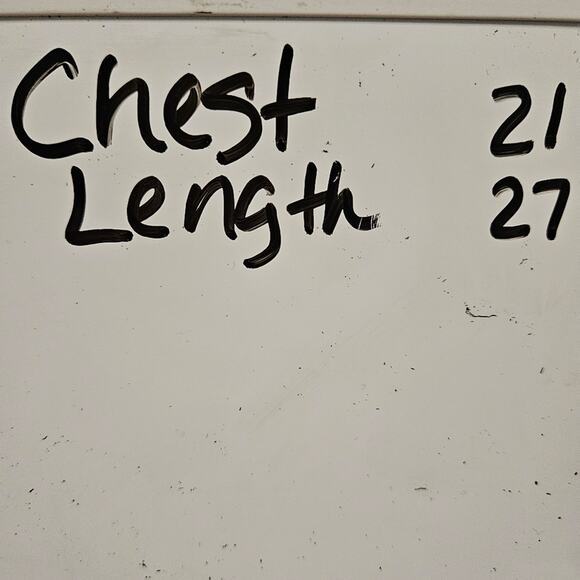 Chest 21
Length 27